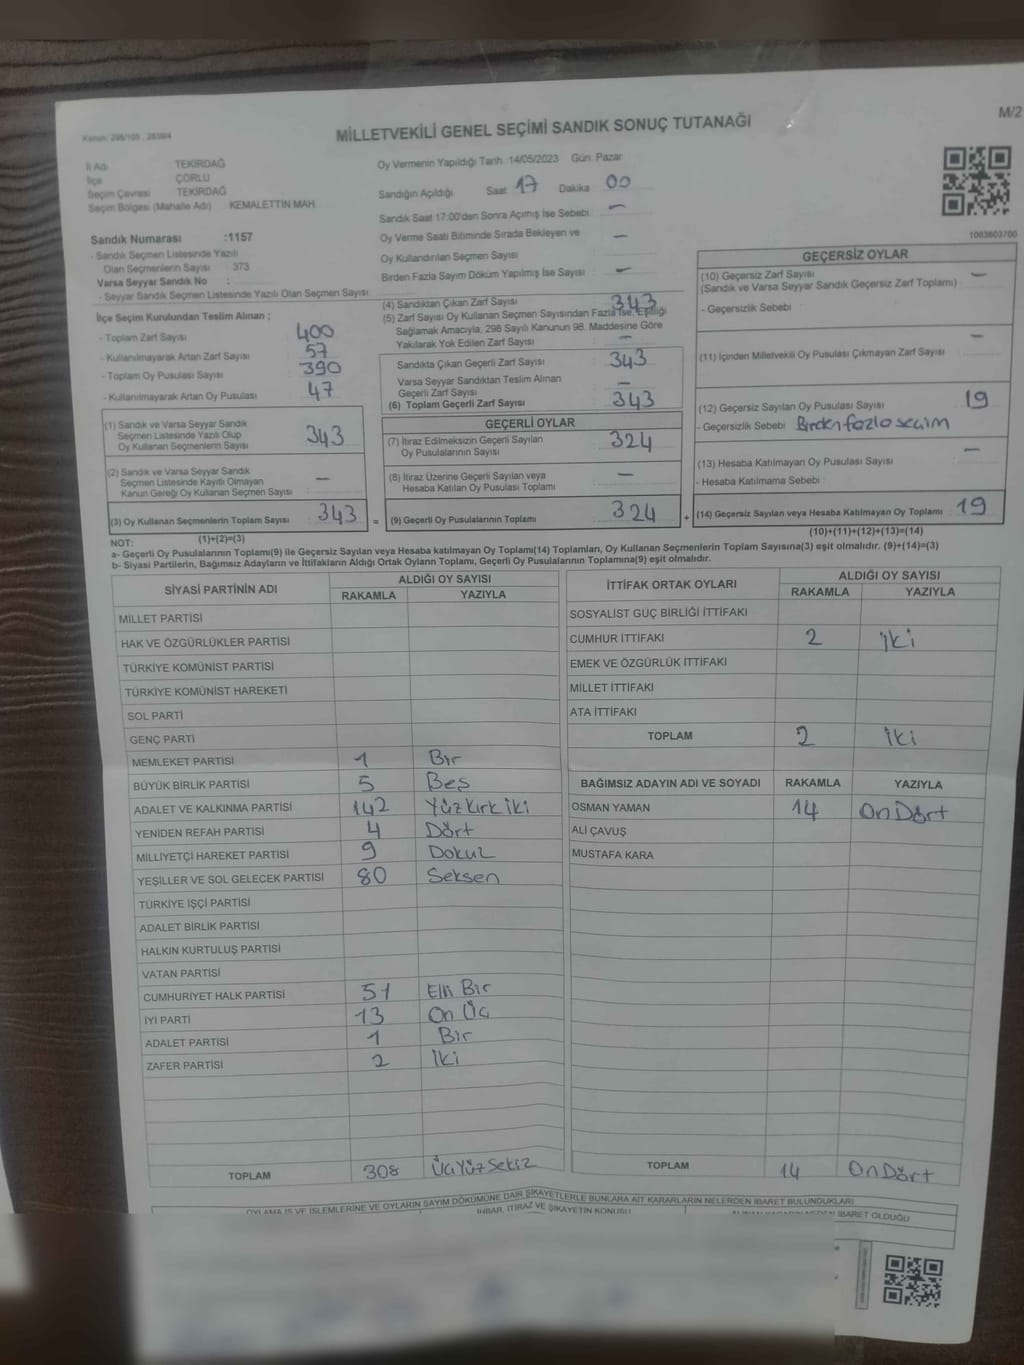 Kanun: 298/105 , 2839/4
M/2
MİLLETVEKİLİ GENEL SEÇİMİ SANDIK SONUÇ TUTANAĞI
İl Adı TEKİRDAĞ
İlçe ÇORLU
Seçim Çevresi TEKİRDAĞ
Seçim Bölgesi (Mahalle Adı) KEMALETTİN MAH.
Oy Vermenin Yapıldığı Tarih :14/05/2023 Gün: Pazar
Sandığın Açıldığı Saat 17 Dakika 00
Sandık Saat 17:00'den Sonra Açımış İse Sebebi : —
Oy Verme Saati Bitiminde Sırada Bekleyen ve
Oy Kullandırılan Seçmen Sayısı : —
Birden Fazla Sayım Döküm Yapılmış İse Sayısı : —
1083603700
Sandık Numarası :1157
- Sandık Seçmen Listesinde Yazılı
Olan Seçmenlerin Sayısı : 373
Varsa Seyyar Sandık No :
- Seyyar Sandık Seçmen Listesinde Yazılı Olan Seçmen Sayısı :
İlçe Seçim Kurulundan Teslim Alınan ;
- Toplam Zarf Sayısı : 400
- Kullanılmayarak Artan Zarf Sayısı : 57
- Toplam Oy Pusulası Sayısı : 390
- Kullanılmayarak Artan Oy Pusulası : 47
(1) Sandık ve Varsa Seyyar Sandık
Seçmen Listesinde Yazılı Olup
Oy Kullanan Seçmenlerin Sayısı : 343
(2) Sandık ve Varsa Seyyar Sandık
Seçmen Listesinde Kayıtlı Olmayan
Kanun Gereği Oy Kullanan Seçmen Sayısı : —
(3) Oy Kullanan Seçmenlerin Toplam Sayısı : 343 =
(1)+(2)=(3)
(4) Sandıktan Çıkan Zarf Sayısı : 343
(5) Zarf Sayısı Oy Kullanan Seçmen Sayısından Fazla İse, Eşitliği
Sağlamak Amacıyla, 298 Sayılı Kanunun 98. Maddesine Göre
Yakılarak Yok Edilen Zarf Sayısı : —
Sandıkta Çıkan Geçerli Zarf Sayısı : 343
Varsa Seyyar Sandıktan Teslim Alınan
Geçerli Zarf Sayısı : —
(6) Toplam Geçerli Zarf Sayısı : 343
GEÇERLİ OYLAR
(7) İtiraz Edilmeksizin Geçerli Sayılan
Oy Pusulalarının Sayısı : 324
(8) İtiraz Üzerine Geçerli Sayılan veya
Hesaba Katılan Oy Pusulası Toplamı : —
(9) Geçerli Oy Pusulalarının Toplamı : 324 +
GEÇERSİZ OYLAR
(10) Geçersiz Zarf Sayısı
(Sandık ve Varsa Seyyar Sandık Geçersiz Zarf Toplamı) : —
- Geçersizlik Sebebi :
(11) İçinden Milletvekili Oy Pusulası Çıkmayan Zarf Sayısı : —
(12) Geçersiz Sayılan Oy Pusulası Sayısı : 19
- Geçersizlik Sebebi Birden fazla seçim
(13) Hesaba Katılmayan Oy Pusulası Sayısı : —
- Hesaba Katılmama Sebebi :
(14) Geçersiz Sayılan veya Hesaba Katılmayan Oy Toplamı : 19
(10)+(11)+(12)+(13)=(14)
NOT:
a- Geçerli Oy Pusulalarının Toplamı(9) ile Geçersiz Sayılan veya Hesaba katılmayan Oy Toplamı(14) Toplamları, Oy Kullanan Seçmenlerin Toplam Sayısına(3) eşit olmalıdır. (9)+(14)=(3)
b- Siyasi Partilerin, Bağımsız Adayların ve İttifakların Aldığı Ortak Oyların Toplamı, Geçerli Oy Pusulalarının Toplamına(9) eşit olmalıdır.
SİYASİ PARTİNİN ADI ALDIĞI OY SAYISI
RAKAMLA YAZIYLA
MİLLET PARTİSİ
HAK VE ÖZGÜRLÜKLER PARTİSİ
TÜRKİYE KOMÜNİST PARTİSİ
TÜRKİYE KOMÜNİST HAREKETİ
SOL PARTİ
GENÇ PARTİ
MEMLEKET PARTİSİ 1 Bir
BÜYÜK BİRLİK PARTİSİ 5 Beş
ADALET VE KALKINMA PARTİSİ 142 Yüz kırk iki
YENİDEN REFAH PARTİSİ 4 Dört
MİLLİYETÇİ HAREKET PARTİSİ 9 Dokuz
YEŞİLLER VE SOL GELECEK PARTİSİ 80 Seksen
TÜRKİYE İŞÇİ PARTİSİ
ADALET BİRLİK PARTİSİ
HALKIN KURTULUŞ PARTİSİ
VATAN PARTİSİ
CUMHURİYET HALK PARTİSİ 51 Elli Bir
İYİ PARTİ 13 On Üç
ADALET PARTİSİ 1 Bir
ZAFER PARTİSİ 2 İki
TOPLAM 308 Üç Yüz Sekiz
İTTİFAK ORTAK OYLARI ALDIĞI OY SAYISI
RAKAMLA YAZIYLA
SOSYALİST GÜÇ BİRLİĞİ İTTİFAKI
CUMHUR İTTİFAKI 2 iki
EMEK VE ÖZGÜRLÜK İTTİFAKI
MİLLET İTTİFAKI
ATA İTTİFAKI
TOPLAM 2 iki
BAĞIMSIZ ADAYIN ADI VE SOYADI RAKAMLA YAZIYLA
OSMAN YAMAN 14 On Dört
ALİ ÇAVUŞ
MUSTAFA KARA
TOPLAM 14 On Dört
OYLAMA İŞ VE İŞLEMLERİNE VE OYLARIN SAYIM DÖKÜMÜNE DAİR ŞİKAYETLERLE BUNLARA AİT KARARLARIN NELERDEN İBARET BULUNDUKLARI
İHBAR, İTİRAZ VE ŞİKAYETİN KONUSU
ALINAN KARARIN NEDEN İBARET OLDUĞU